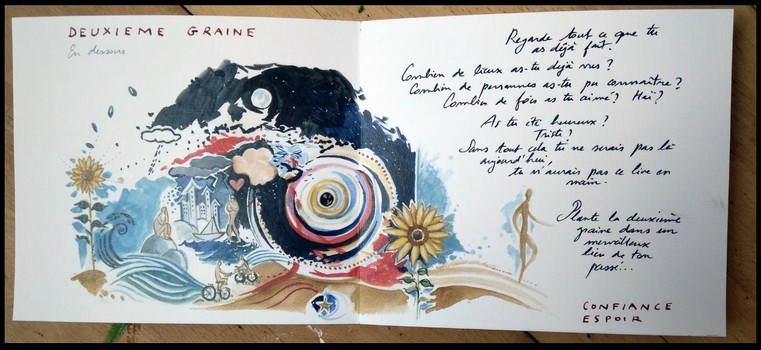 DEUXIEME GRAINE
En dessous
Regarde tout ce que tu
as déjà fait.
Combien de lieux as-tu déjà vus ?
Combien de personnes as-tu pu connaître ?
Combien de fois as tu aimé ? Haï ?
As tu été heureux ?
Triste ?
Sans tout cela tu ne serais pas là
aujourd'hui,
tu n'aurais pas ce livre en
main.
Plante la deuxième
graine dans un
merveilleux
lieu de ton
passé...
CONFIANCE
ESPOIR